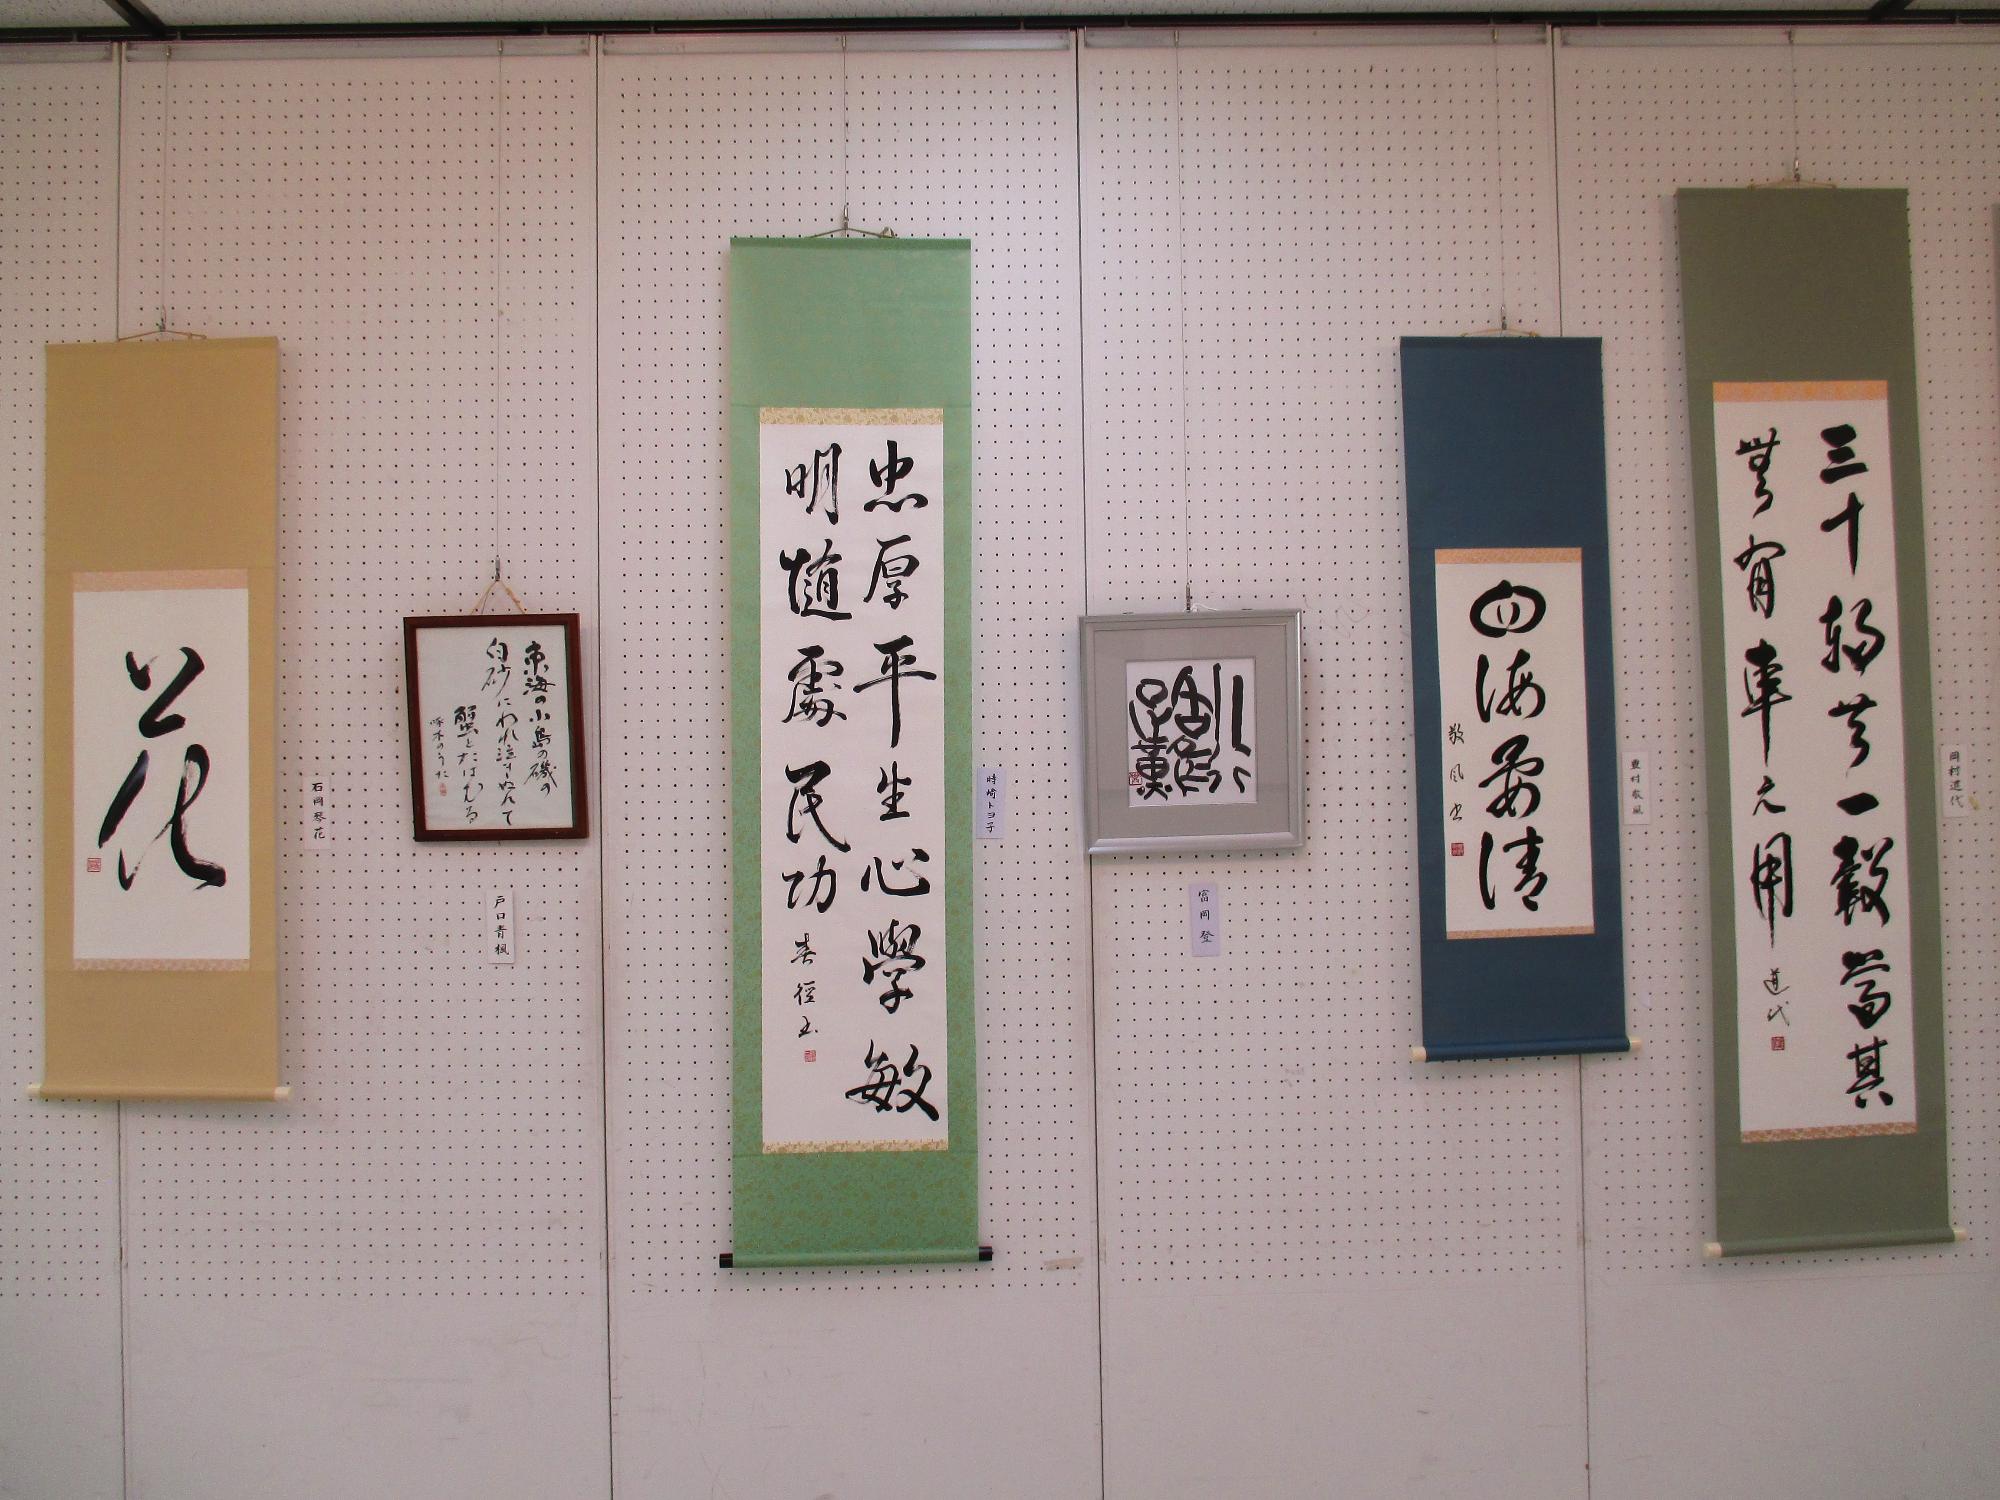 花
石岡琴花
東海の小島の磯の
白砂にわれ泣きぬれて
蟹とたはむる
啄木のうた
戸口青楓
忠厚平生心學敏
明隨處民功
春徑書
時崎トヨ子
富岡 登
四海晏清
敬風書
豊村敬風
三十輻共一轂當其
無有車之用
道代
岡村道代